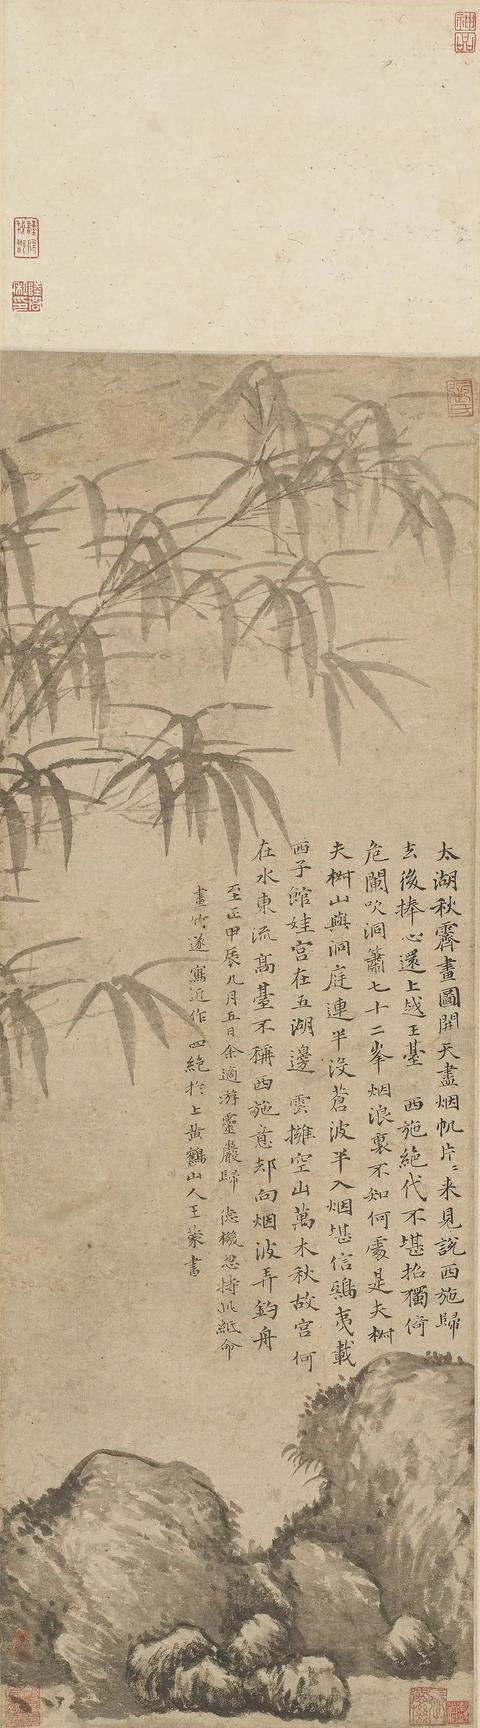 太湖秋霽畫圖開天盡烟帆片〻来見說西施歸
去後捧心還上越王臺　西施絕代不堪招獨倚
危闌吹洞簫七十二峯烟浪裏不知何處是夫椒
夫椒山與洞庭連半没蒼波半入烟堪信鴟夷載
西子館娃宮在五湖邊　雲擁空山萬木秋故宮何
在水東流高臺不稱西施意却向烟波弄釣舟
至正甲辰九月五日余適游靈巖歸　德機忽持此紙命
畫竹遂寫近作四絕於上黃鶴山人王蒙書
神品